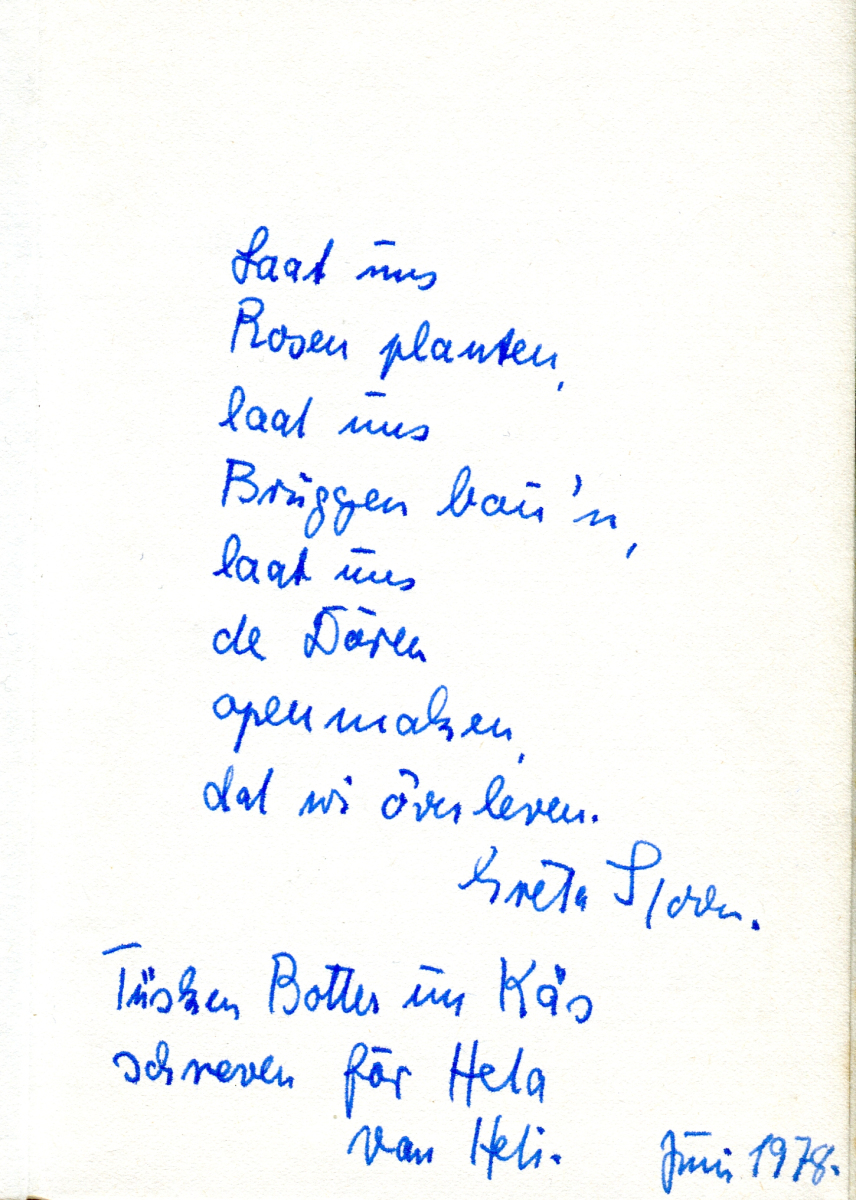 Laat uns
Rosen planten,
laat uns
Brüggen bau'n,
laat uns
de Dören
openmaken,
dat wi överleven.
Greta Schoon.
Tüsken Botter un Käs
schreven för Hela
van Heli.
Juni 1978.